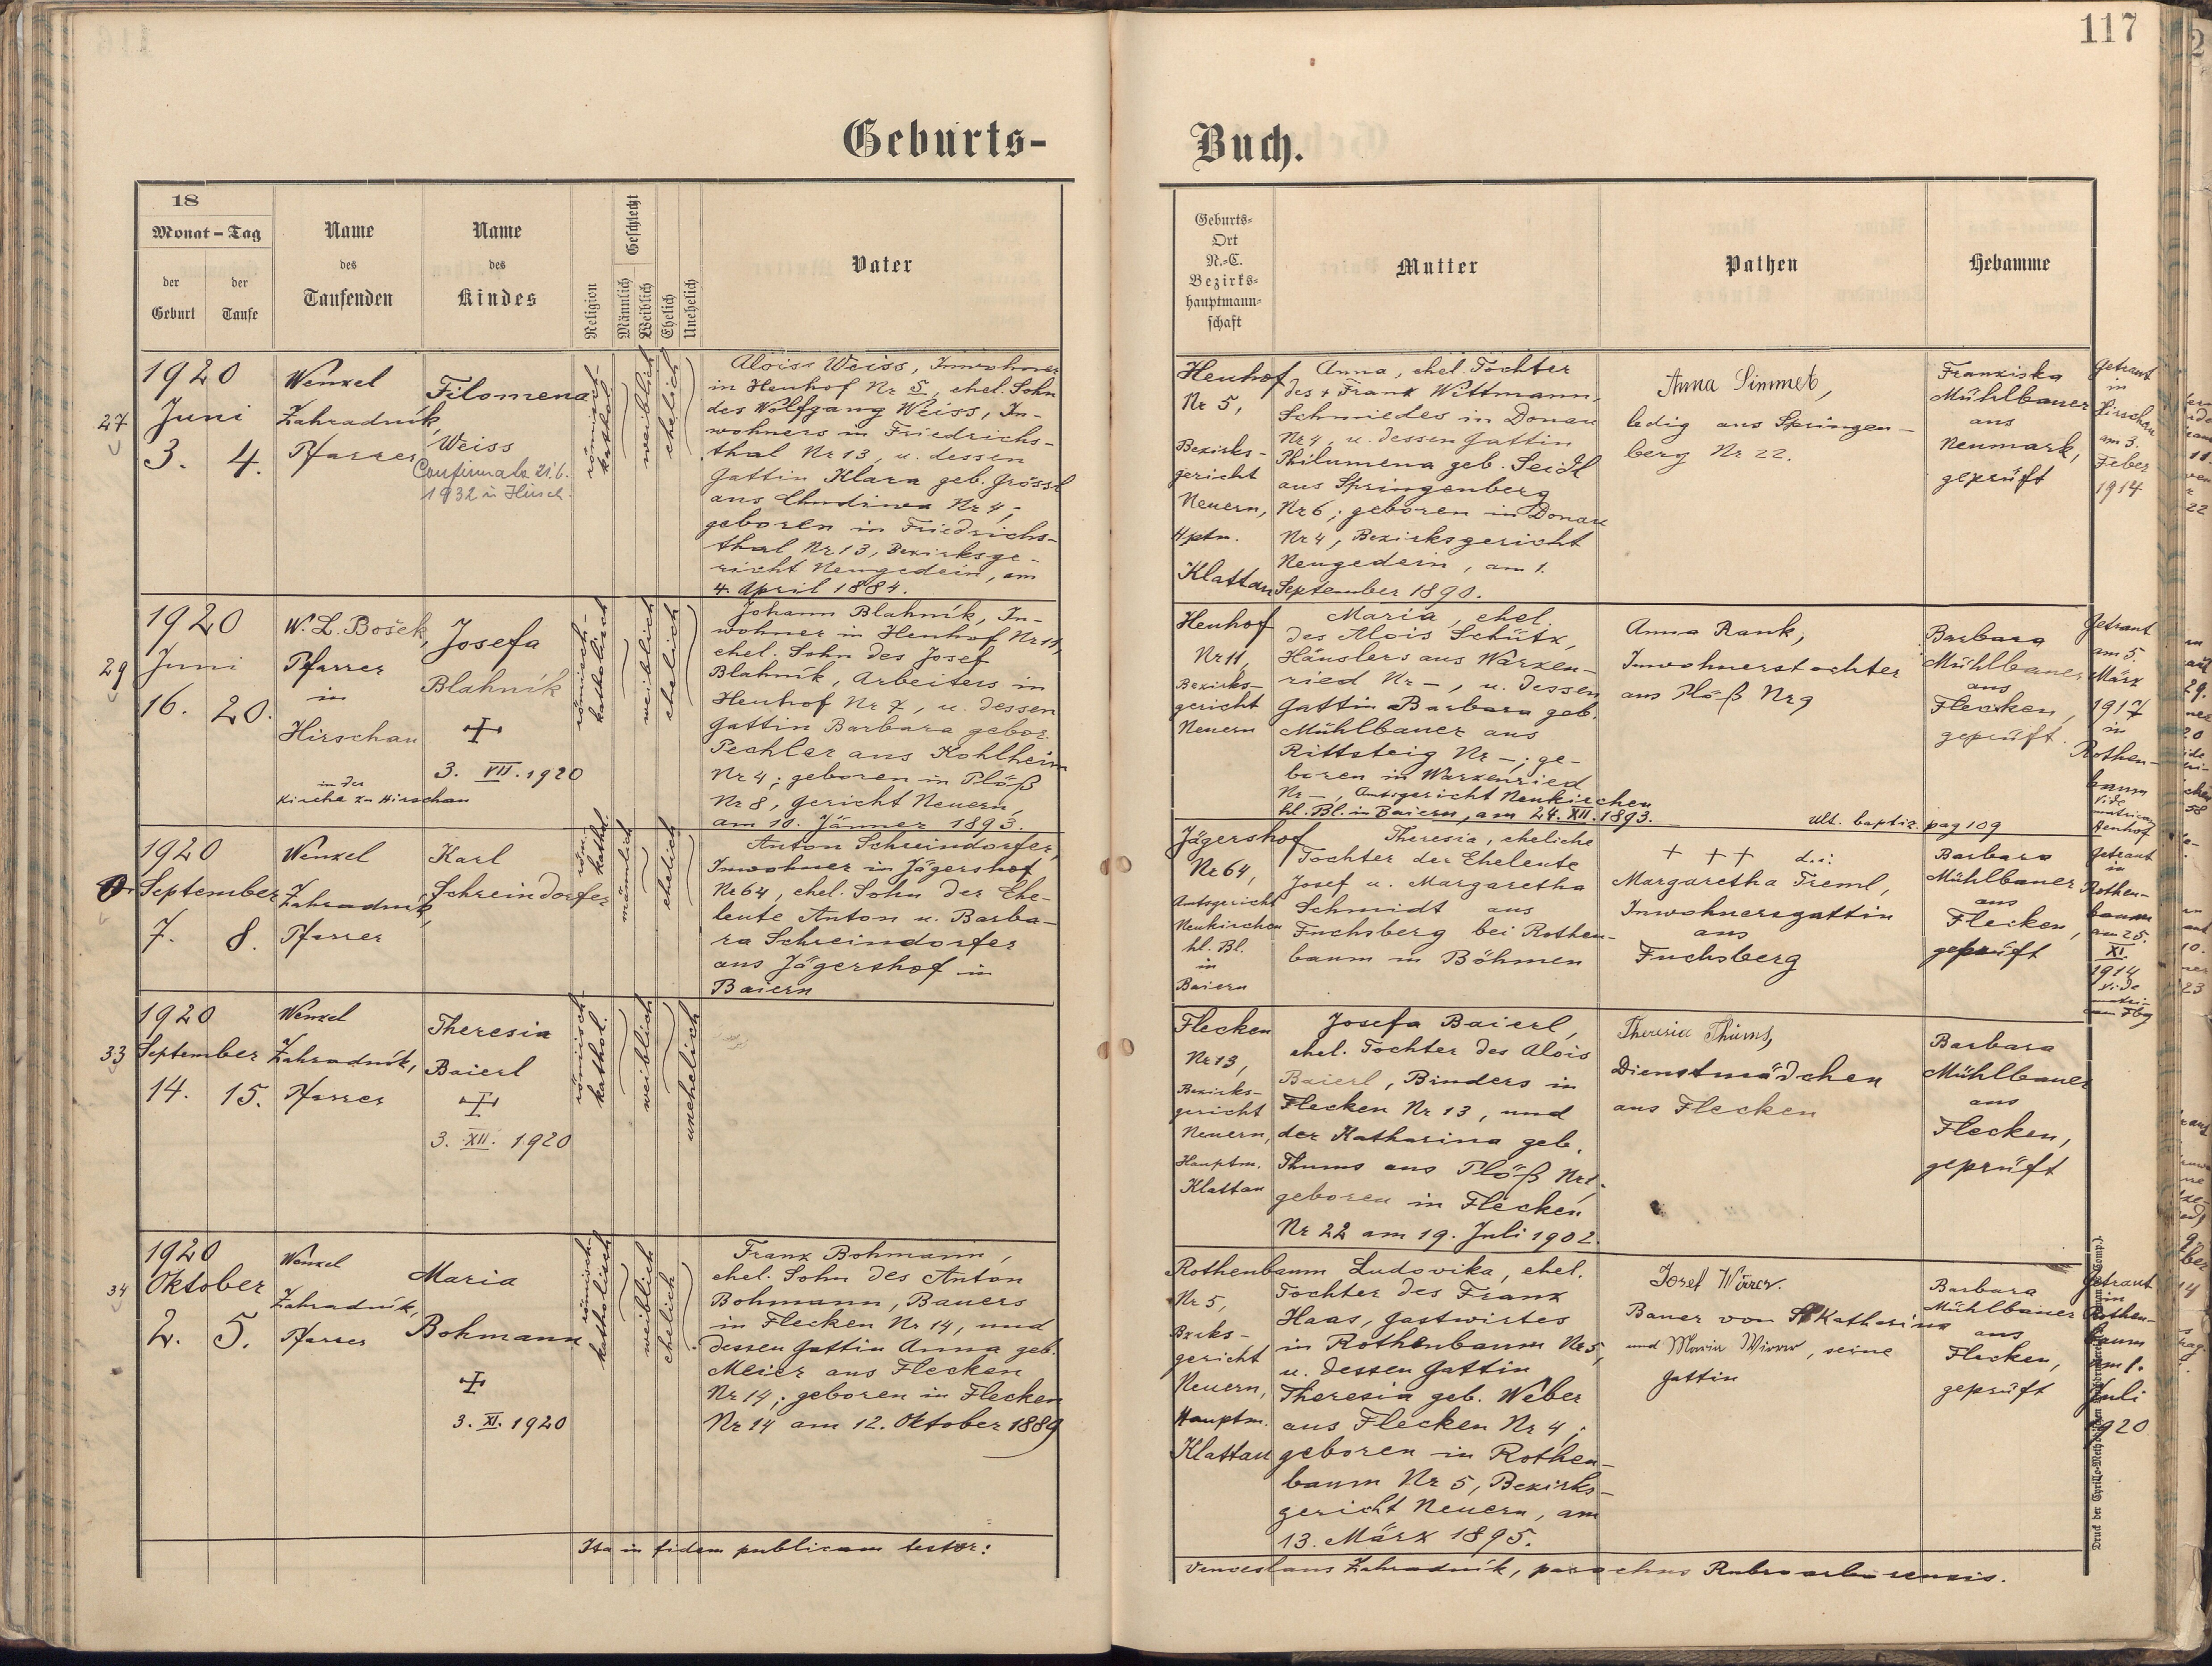 117
Geburts-
Buch.
18
Monat - Tag
der Geburt
der Taufe
Name
des
Taufenden
Name
des
Kindes
Religion
Geschlecht
Männlich
Weiblich
Ehelich
Unehelich
Vater
Geburts-
Ort
N.-C.
Bezirks-
hauptmann-
schaft
Mutter
Pathen
Hebamme
27
1920
Juni
3. 4.
Wenzel
Zahradník,
Pfarrer
Filomena
Weiss
Confirmata 21.6.
1932 in Hirsch.
römisch-
kathol.
weiblich
ehelich
Alois Weiss, Inwohner
in Heuhof Nr 5, ehel. Sohn
des Wolfgang Weiss, In-
wohners in Friedrichs-
thal Nr 13, u. dessen
Gattin Klara geb. Grössl
aus Chudiwa Nr 4;
geboren in Friedrichs-
thal Nr 13, Bezirksge-
richt Neugedein, am
4. April 1884.
Heuhof
Nr 5,
Bezirks-
gericht
Neuern,
Hptm.
Klattau
Anna, ehel. Tochter
des + Franz Wittmann,
Schmiedes in Donau
Nr 4, u. dessen Gattin
Philumena geb. Seidl
aus Springenberg
Nr 6; geboren in Donau
Nr 4, Bezirksgericht
Neugedein, am 1.
September 1890.
Anna Simmet,
ledig aus Springen-
berg Nr 22.
Franziska
Mühlbauer
aus
Neumark,
geprüft
Getraut
in
Hirschau
am 3.
Feber
1914
29
1920
Juni
16. 20.
W. L. Bošek,
Pfarrer
in
Hirschau
in der
Kirche zu Hirschau
Josefa
Blahník
+
3. VII. 1920
römisch-
katholisch
weiblich
ehelich
Johann Blahník, In-
wohner in Heuhof Nr 11,
ehel. Sohn des Josef
Blahník, Arbeiters in
Heuhof Nr 7, u. dessen
Gattin Barbara gebor.
Pechler aus Kohlheim
Nr 4; geboren in Plöß
Nr 8, Gericht Neuern,
am 10. Jänner 1893.
Heuhof
Nr 11,
Bezirks-
gericht
Neuern
Maria, ehel.
des Alois Schütz,
Häuslers aus Warzen-
ried Nr -, u. dessen
Gattin Barbara geb.
Mühlbauer aus
Rittsteig Nr -; ge-
boren in Warzenried
Nr -, Amtsgericht Neukirchen
hl. Bl. in Baiern, am 24. XII. 1893.
Anna Rank,
Inwohnerstochter
aus Plöß Nr 9
Ult. baptiz. pag 109
Barbara
Mühlbauer
aus
Flecken,
geprüft.
Getraut
am 5.
März
1917
in
Rothen-
baum
vide
matricam
Heuhof
1920
September
7. 8.
Wenzel
Zahradník,
Pfarrer
Karl
Schreindorfer
röm.
kathol.
männlich
ehelich
Anton Schreindorfer,
Inwohner in Jägershof
Nr 64, ehel. Sohn der Ehe-
leute Anton u. Barba-
ra Schreindorfer
aus Jägershof in
Baiern
Jägershof
Nr 64,
Amtsgericht
Neukirchen
hl. Bl.
in
Baiern
Theresia, eheliche
Tochter der Eheleute
Josef u. Margaretha
Schmidt aus
Fuchsberg bei Rothen-
baum in Böhmen
+ + + d. i.
Margaretha Treml,
Inwohnersgattin
aus
Fuchsberg
Barbara
Mühlbauer
aus
Flecken,
geprüft
Getraut
in
Rothen-
baum
am 25.
XI.
1914
vide
33
1920
September
14. 15.
Wenzel
Zahradník,
Pfarrer
Theresia
Baierl
+
3. XII. 1920
römisch-
kathol.
weiblich
unehelich
Flecken
Nr 13,
Bezirks-
gericht
Neuern,
Hauptm.
Klattau
Josefa Baierl,
ehel. Tochter des Alois
Baierl, Binders in
Flecken Nr 13, und
der Katharina geb.
Thums aus Plöß Nr 1.
geboren in Flecken
Nr 22 am 19. Juli 1902.
Theresia Thums,
Dienstmädchen
aus Flecken
Barbara
Mühlbauer
aus
Flecken,
geprüft
34
1920
Oktober
2. 5.
Wenzel
Zahradník,
Pfarrer
Maria
Bohmann
+
3. XI. 1920
römisch-
katholisch
weiblich
ehelich
Franz Bohmann,
ehel. Sohn des Anton
Bohmann, Bauers
in Flecken Nr 14, und
dessen Gattin Anna geb.
Meier aus Flecken
Nr 14; geboren in Flecken
Nr 14 am 12. Oktober 1889
Rothenbaum
Nr 5,
Bzrks-
gericht
Neuern,
Hauptm.
Klattau
Ludovika, ehel.
Tochter des Franz
Haas, Gastwirtes
in Rothenbaum Nr 5,
u. dessen Gattin
Theresia geb. Weber
aus Flecken Nr 4;
geboren in Rothen-
baum Nr 5, Bezirks-
gericht Neuern, am
13. März 1895.
Josef Wirrer.
Bauer von St Katharina
und Maria Wirrer, seine
Gattin
Barbara
Mühlbauer
aus
Flecken,
geprüft
Getraut
in
Rothen-
baum
am 1.
Juli
1920
Ita in fidem publicam testor:
Venceslaus Zahradník, parochus Rubroarborensis.